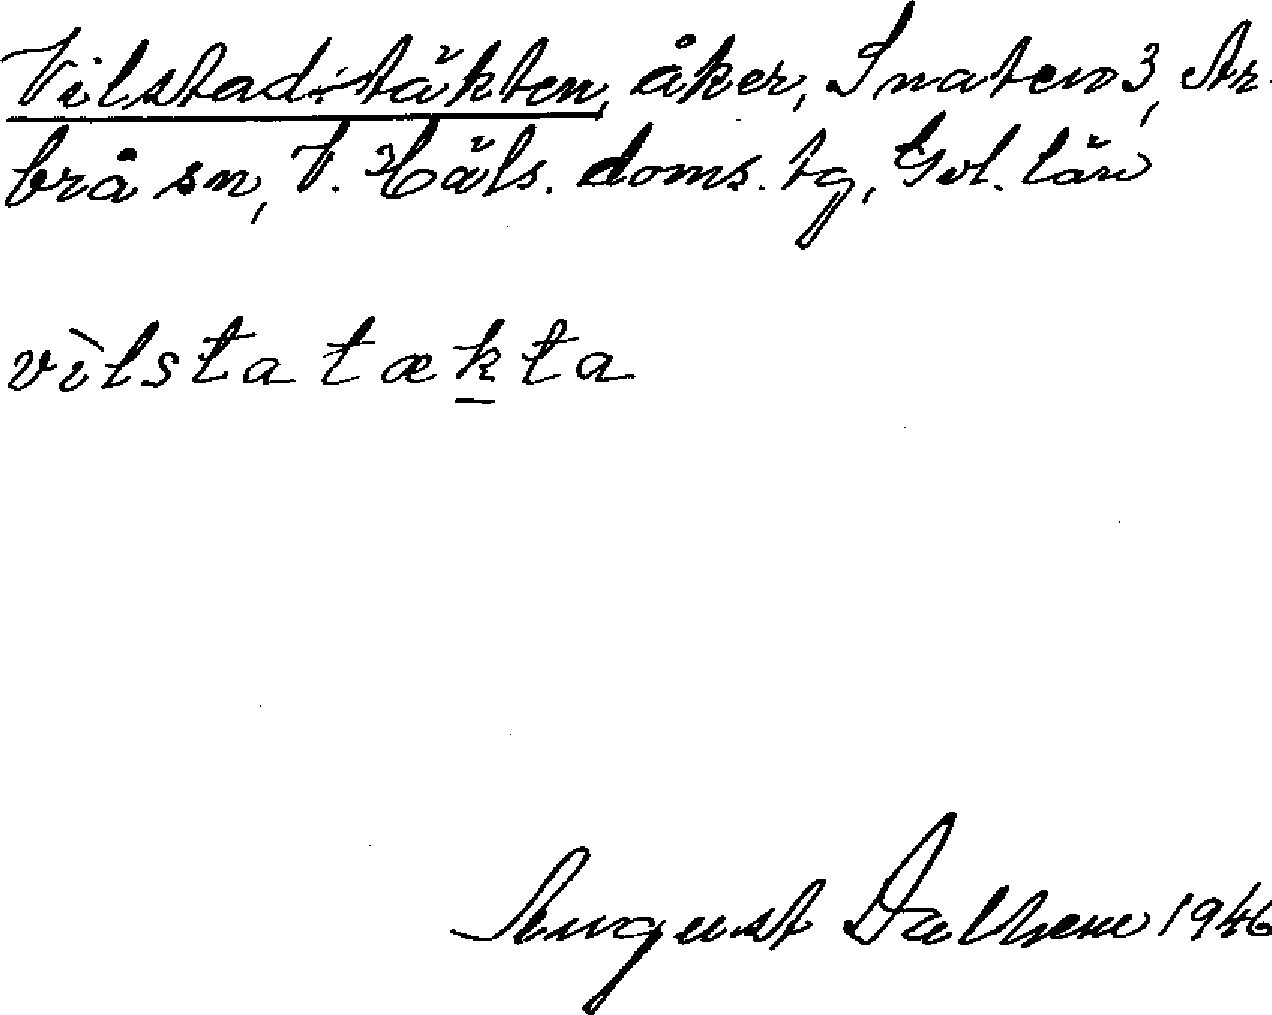 Vilstad-täkten, åker, Snaten 3, Ar-
brå sn, V. Häls. doms. tg, Gvl. län
vìlsta tækta
August Dalhem 1946